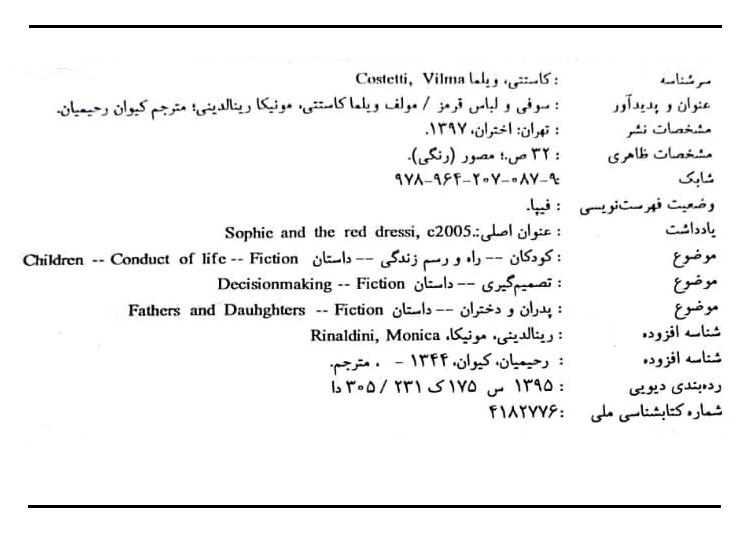 سرشناسه : کاستتی، ویلما Costetti, Vilma
عنوان و پدیدآور : سوفی و لباس قرمز / مولف ویلما کاستتی، مونیکا رینالدینی؛ مترجم کیوان رحیمیان.
مشخصات نشر : تهران: اختران، ۱۳۹۷.
مشخصات ظاهری : ۳۲ ص.؛ مصور (رنگی).
شابک : ۹۷۸-۹۶۴-۲۰۷-۰۸۷-۹
وضعیت فهرست‌نویسی : فیپا.
یادداشت : عنوان اصلی:.Sophie and the red dressi, c2005
موضوع : کودکان -- راه و رسم زندگی -- داستان Children -- Conduct of life -- Fiction
موضوع : تصمیم‌گیری -- داستان Decisionmaking -- Fiction
موضوع : پدران و دختران -- داستان Fathers and Dauhghters -- Fiction
شناسه افزوده : رینالدینی، مونیکا، Rinaldini, Monica
شناسه افزوده : رحیمیان، کیوان، ۱۳۴۴ - ، مترجم.
رده‌بندی دیویی : ۱۳۹۵ س ۱۷۵ ک ۲۳۱ / ۳۰۵ دا
شماره کتابشناسی ملی : ۴۱۸۲۷۷۶